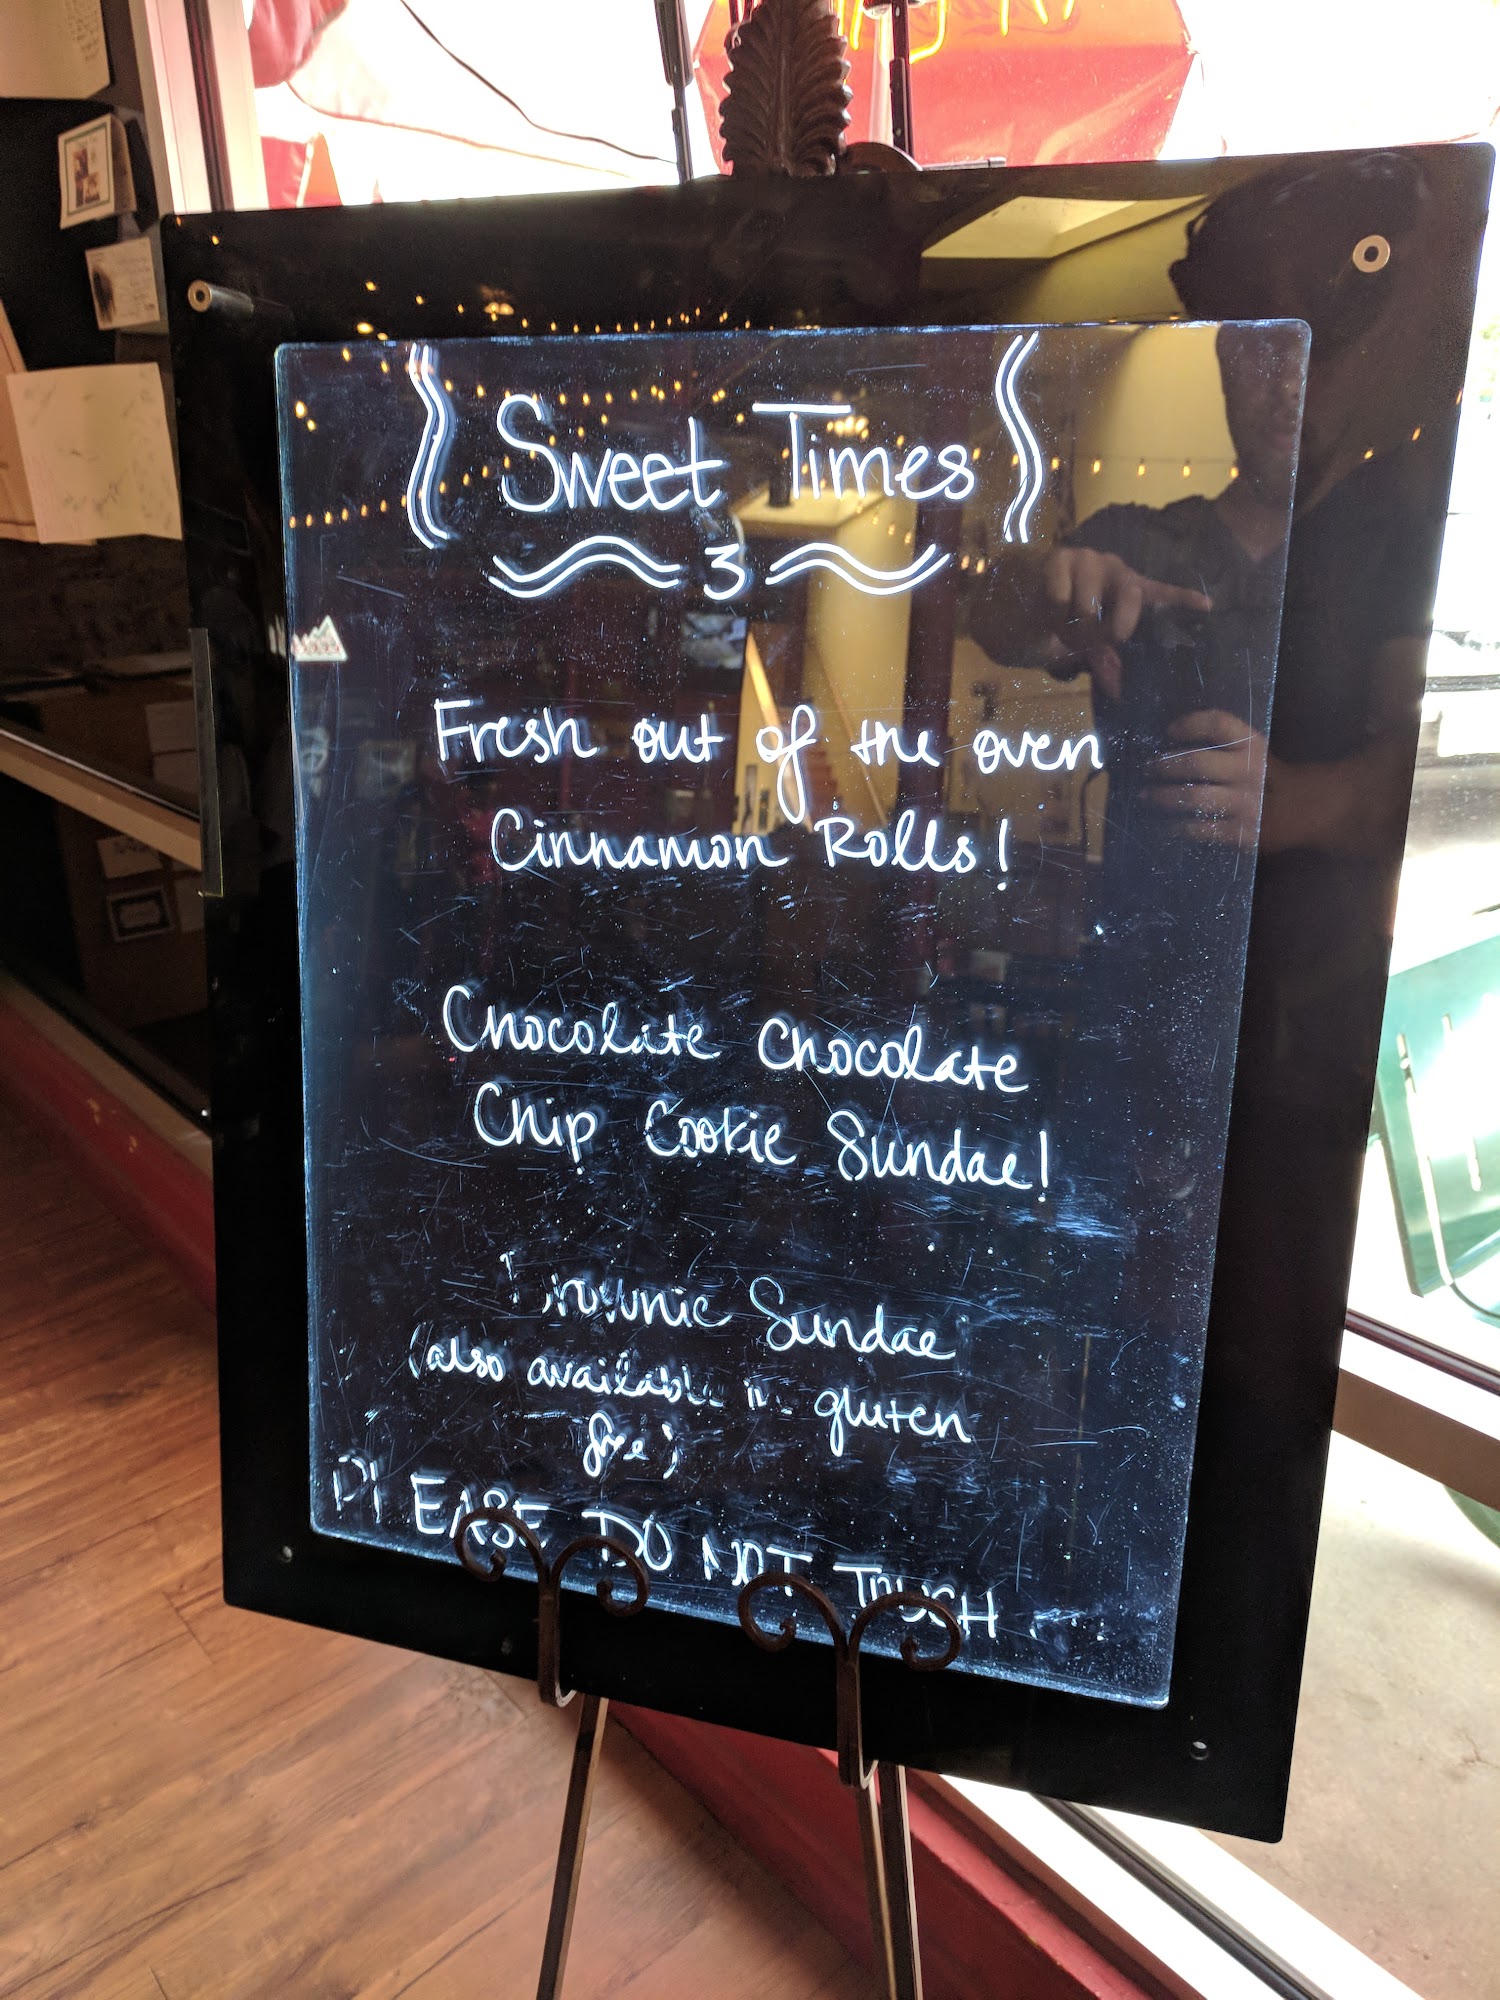 Sweet Times
3
Fresh out of the oven
Cinnamon Rolls!
Chocolate Chocolate
Chip Cookie Sundae!
Brownie Sundae
(also available in gluten
free)
PLEASE DO NOT TOUCH